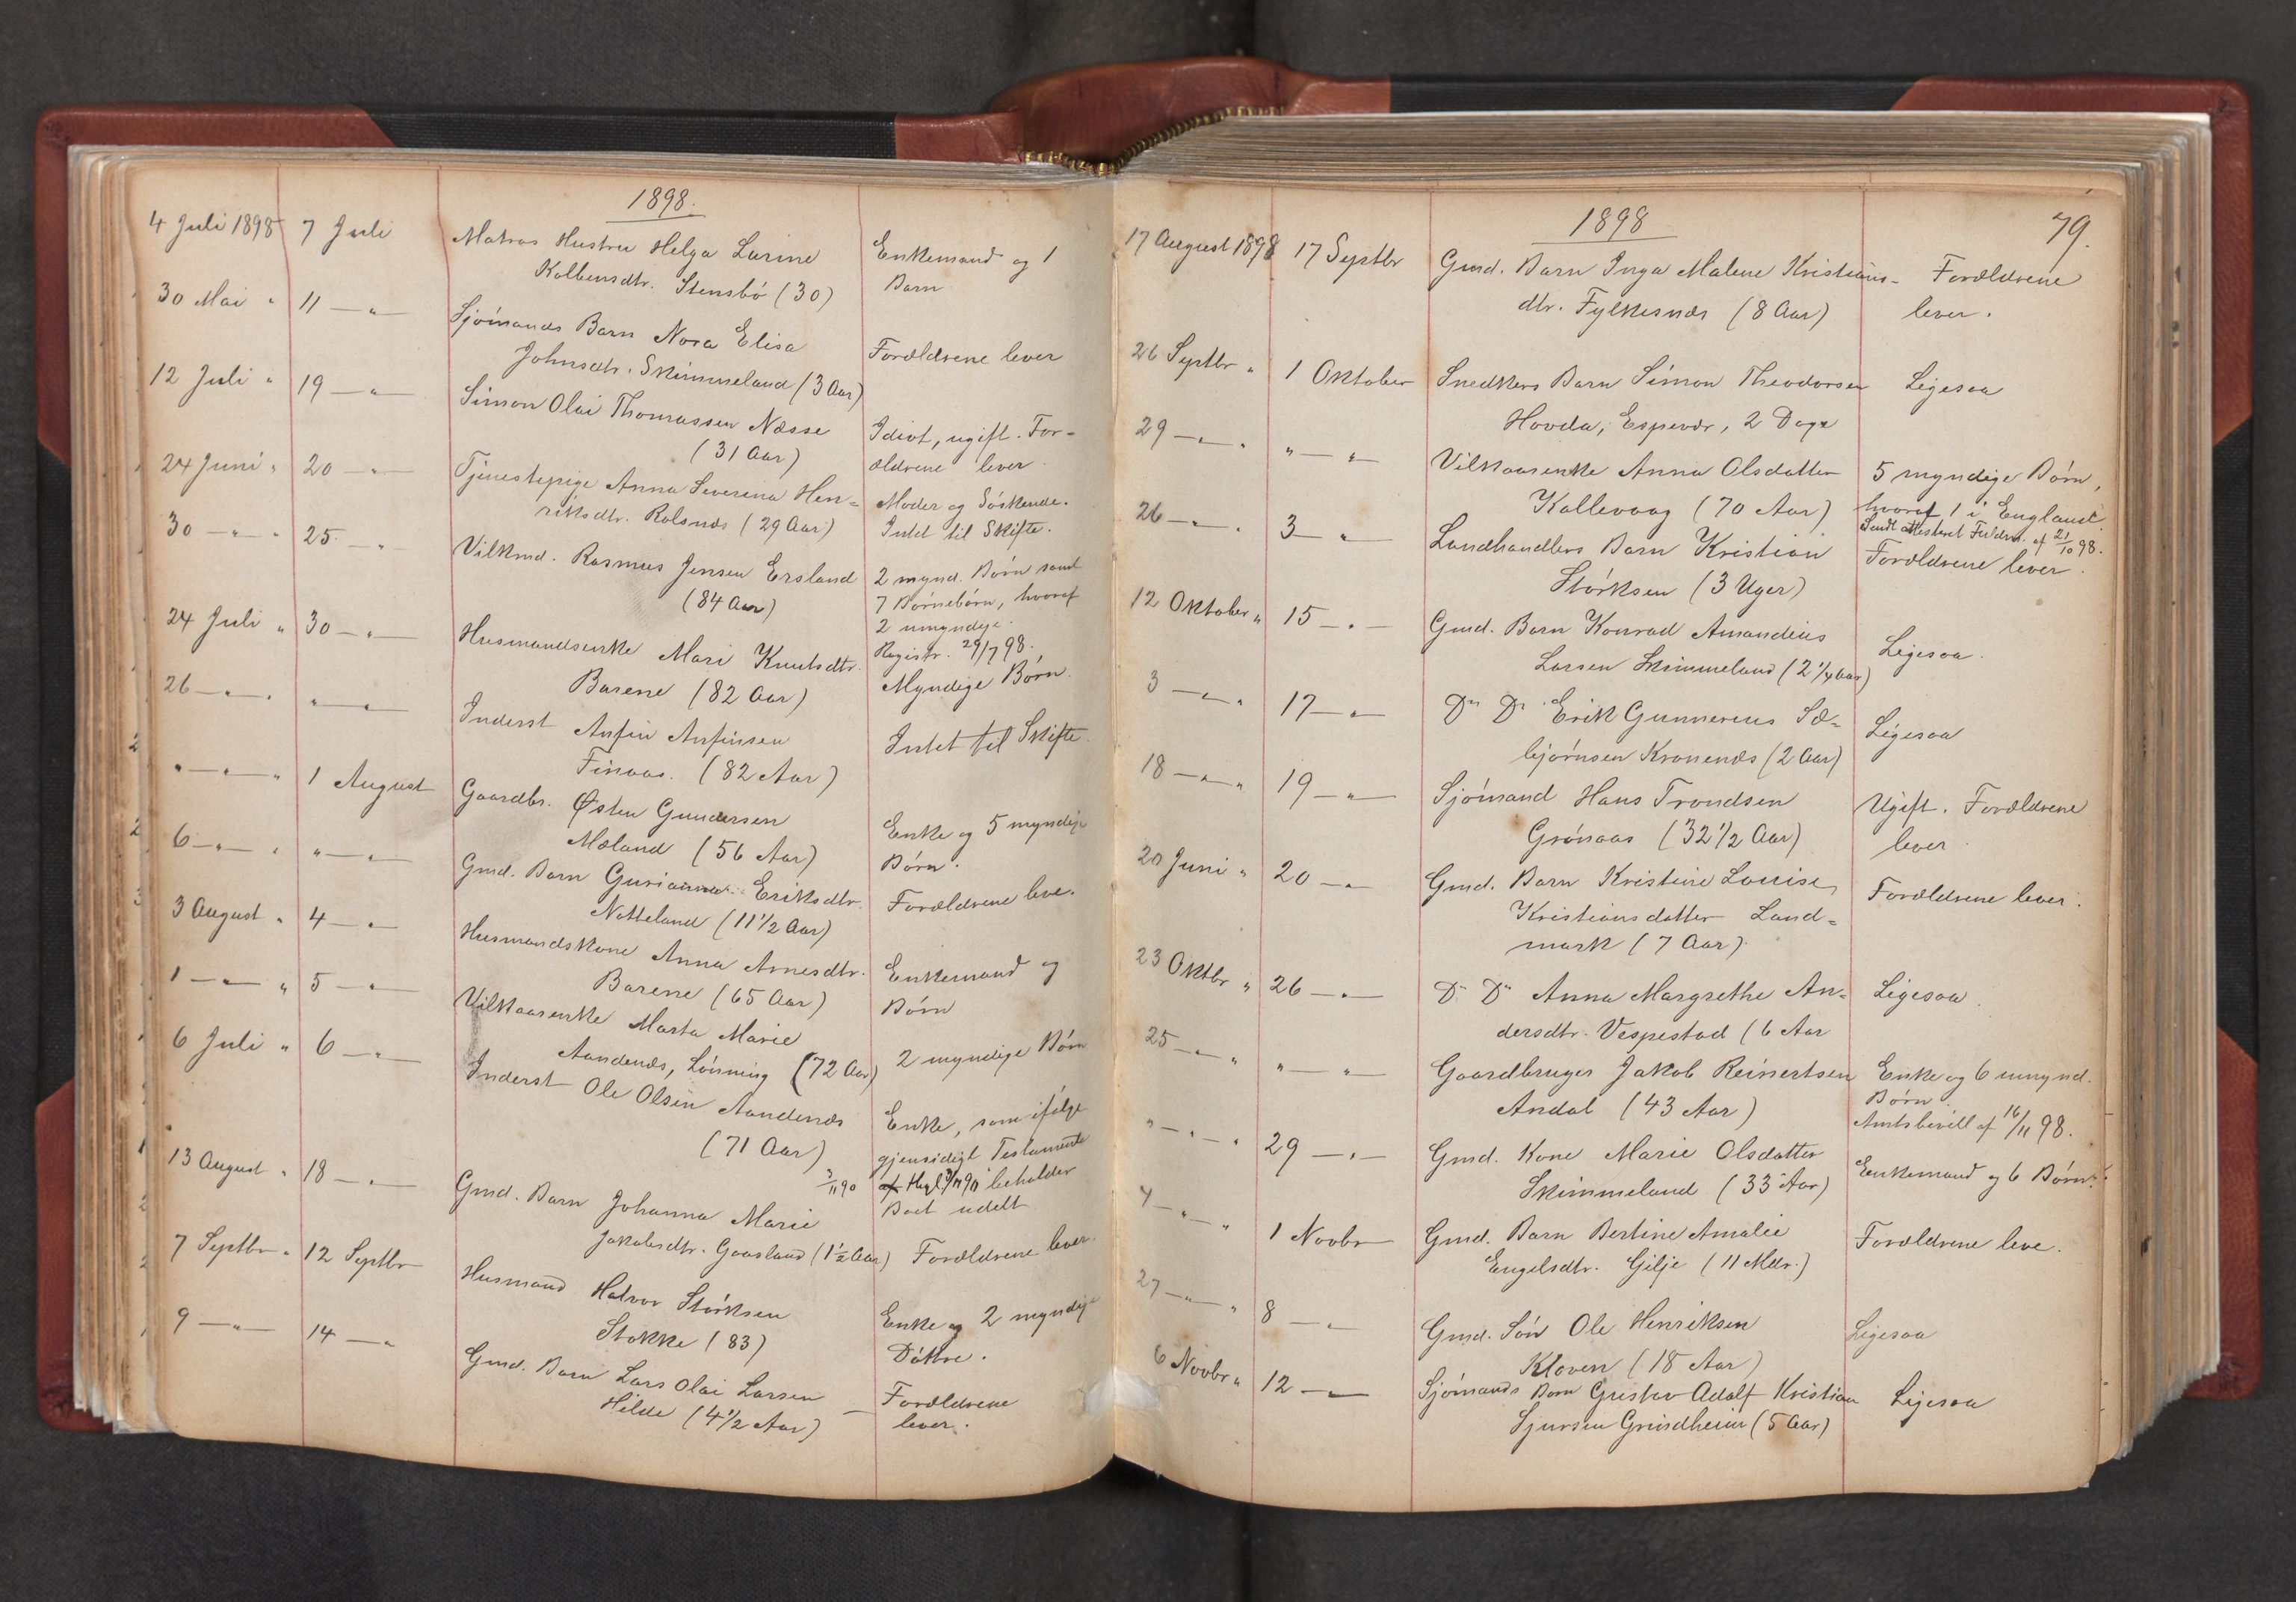 1898.
4 Juli 1898 7 Juli Matros Hustru Helga Larine Enkemand og 1
Kolbensdtr. Stensbö (30) Barn
30 Mai " 11 — " — Sjömands Barn Nora Elisa Forældrene lever
Johnsdtr. Skimmeland (3 Aar)
12 Juli " 19 — " — Simon Olai Thomassen Næsse Idiot, ugift. For-
(31 Aar) ældrene lever
24 Juni " 20 — " — Tjenestepige Anna Severina Hen- Moder og Söskende.
riksdtr. Rolsnæs (29 Aar) Intet til Skifte.
30 — " — " 25 — " Vilkmd. Rasmus Jensen Ersland 2 mynd. Börn samt
(84 Aar) 7 Börnebörn, hvoraf
2 umyndige.
Registr. 29/7 98.
24 Juli " 30 — " — Husmandsenke Mari Knutsdtr. Myndige Börn.
Barene (82 Aar)
26 — " — " " — " — Inderst Anfin Anfinsen Intet til Skifte.
Finaas. (82 Aar)
" — " — " 1 August Gaardbr. Østen Gundersen Enke og 5 myndige
Mæland (56 Aar) Börn.
6 — " — " " — " — Gmd. Barn Gurianna Eriksdtr. Forældrene leve.
Notteland (11 1/2 Aar)
3 August " 4 — " — Husmandskone Anna Arnesdtr. Enkemand og
Barene (65 Aar) Börn
1 — " — " 5 — " — Vilkaarsenke Marta Marie 2 myndige Börn
Aandenæs, Lönning (72 Aar)
6 Juli " 6 — " — Inderst Ole Olsen Aandenæs Enke, som ifölge
(71 Aar) gjensidigt Testamente
3/11 90 af Thgl. 3/11 90 beholder
Boet udelt
13 August " 18 — " — Gmd. Barn Johanna Marie Forældrene lever.
Jakobsdtr. Gaasland (1 1/2 Aar)
7 Septbr " 12 Septbr Husmand Halvor Störksen Enke og 2 myndige
Stokke (83) Döttre.
9 — " — 14 — " Gmd. Barn Lars Olai Larsen — Forældrene
Hilde (4 1/2 Aar) lever.
1898 79.
17 August 1898 17 Septbr Gmd. Barn Inga Malene Kristians- Forældrene
dtr. Fylkesnæs (8 Aar) lever.
26 Septbr " 1 Oktober Snedkers Barn Simon Theodorsen Ligesaa
Hovda, Espevær, 2 Dage
29 — " — " " — " Vilkaarsenke Anna Olsdatter 5 myndige Börn,
Kallevaag (70 Aar) hvoraf 1 i England.
Sendt attesteret Fuldm. af 21/10 98.
26 — " — " 3 — " Landhandlers Barn Kristian Forældrene lever.
Störksen (3 Uger)
12 Oktober " 15 — " — Gmd. Barn Konrad Amandeus Ligesaa.
Larsen Skimmeland (2 1/4 Aar)
3 — " — " 17 — " — Do Do Erik Gunnerius Sæ- Ligesaa
björnsen Kronenæs (2 Aar)
18 — " — " 19 — " — Sjömand Hans Trondsen Ugift. Forældrene
Grönaas (32 1/2 Aar) lever.
20 Juni " 20 — " — Gmd. Barn Kristine Louise Forældrene lever.
Kristiansdatter Land-
mark (7 Aar).
23 Oktbr " 26 — " — Do Do Anna Margrethe An- Ligesaa.
dersdtr. Vespestad (6 Aar
25 — " — " " — " Gaardbruger Jakob Reinertsen Enke og 6 umynd.
Andal (43 Aar) Börn
Amtsbevill af 16/11 98.
" — " — " 29 — " — Gmd. Kone Marie Olsdatter Enkemand og 6 Börn.
Skimmeland (33 Aar)
4 — " — " 1 Novbr Gmd. Barn Bertine Amalie Forældrene leve.
Engelsdtr. Gilje (11 Mdr.)
27 — " — " 8 — " Gmd. Sön Ole Henriksen Ligesaa
Kloven (18 Aar)
6 Novbr " 12 — " — Sjömands Barn Gustav Adolf Kristian Ligesaa
Sjursen Grindheim (5 Aar)